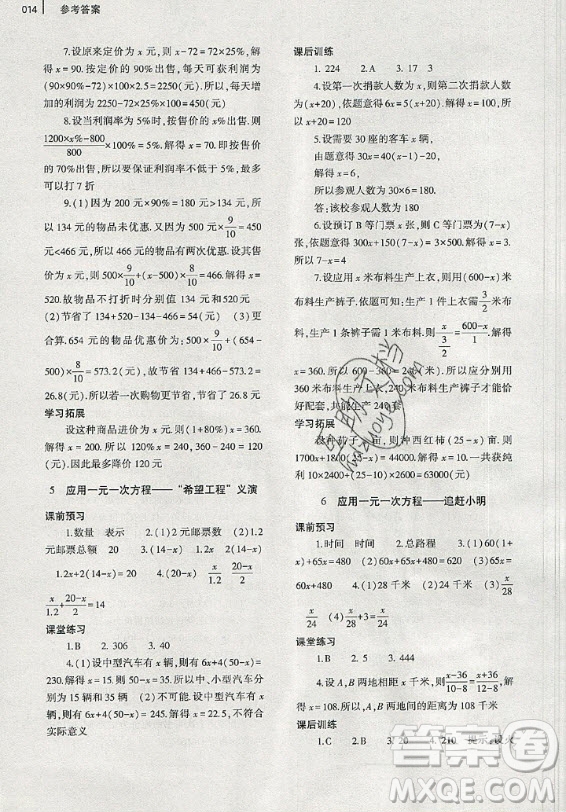 014 参考答案
7.设原来定价为 x 元,则 x-72=72×25%,解得
x=90. 按定价的 90%出售,每天可获利润为
(90×90%-72)×100×2.5=2250(元). 所以每天增
加的利润为 2250-72×25%×100=450(元)
8.设当利润率为 5%时,按售价的 x%出售,所以
(1200×x%-800)/800×100%=5%,解得 x=70. 所以当按售
价的 70%出售,所以要保证利润率不低于 5%,最多
可以打 7 折
9.(1)因为 200×90%=180(元)>134 元,所
以 134 元的物品未优惠. 又因为 500×9/10=450(元)
<466 元,所以 466 元的物品有两次优惠. 设其售
价为 x 元,则 500×9/10+(x-500)×8/10=466,解得 x=
520. 故物品不打折时分别值 134 元和 520 元
(2)节省了 134+520-134-466=54(元) (3)两
次购物品的全部优惠价为:500×9/10+(134+520-
500)×8/10=573.2(元),而 134+466-573.2=
26.8(元),所以若一次购物更节省,节省了 26.8 元
学习拓展
设这种商品进价为 x 元,则(1+80%)x=360.
解得 x=200. 所以 1.2x=240,360-240=120
(元). 因此最多降价 120 元
5 应用一元一次方程——“希望工程”义演
课前预习
1.数量 表示 2.(1)2 元邮票数 (2)1.2
元邮票总额 20 3.(1)(14-x) (2)1.2x 2(14-x)
4. 1.2x+2(14-x)=20 5. x/1.2 (20-x)/2
x/1.2+(20-x)/2=14
课堂练习
1.B 2. 306 3. 40
4.(1)设中型汽车有 x 辆,则有 6x+4(50-x)=
230.解得 x=15. 则 50-x=35. 所以中、小型汽车分
别为 15 辆和 35 辆 (2)不可能. 设中型汽车有 x
辆,则有 6x+4(50-x)=245. 解得 x=22.5. 不符合
实际意义
课后训练
1. 224 2.A 3. 17 3
4.设第一次捐款人数为 x,则第二次捐款人数
为(x+20),依题意得 6x=5(x+20). 解得 x=100.
所以 x+20=120
5.设需要 30 座的客车 x 辆,
由题意得 30x=40(x-1)-20.
解得 x=6.
所以参观人数为 30x=180.
答:该校参观人数为 180
6.设预订 B 等门票 x 张,则 C 等门票为(7-x)
张. 依题意得 300x+150(7-x)=1500. 解得 x=3.
所以 7-x=4
7.设应用 x 米布料生产上衣,则用(600-x)米
布料生产裤子. 由题可知:生产 1 件上衣需 3/2 米布
料,生产 1 条裤子需 1 米布料. x/(3/2)=(600-x)/1. 解得
x=360. 所以 600-360=240(米),
360 米布料生产上衣,240 米布料生产裤子才能恰
好配套,共能生产 240 套
学习拓展
设种茄子 x 亩,则种西红柿(25-x)亩. 则
1700x+1800(25-x)=44000. 解得 x=10. 一共获纯
利 10×2400+(25-10)×2600=63000(元)
6 应用一元一次方程——追赶小明
课前预习
1.时间 时间 2.总路程 3. 60x+480 65x
60x+480 4.(1)28 千米 (2)24 千米 (3)x/28
x/24 (4)x/28+3=x/24
课堂练习
1.B 2.5 3. 444
4.设 A、B 两地相距 x 千米,则(x-36)/(10-8)=(x+36)/(12-8).
解得 x=108. 所以 A、B 两地间的距离为 108 千米
课后训练
1.C 2.B 3. 20 4. 210 提示:设火
作业帮文档
MXQE.COM